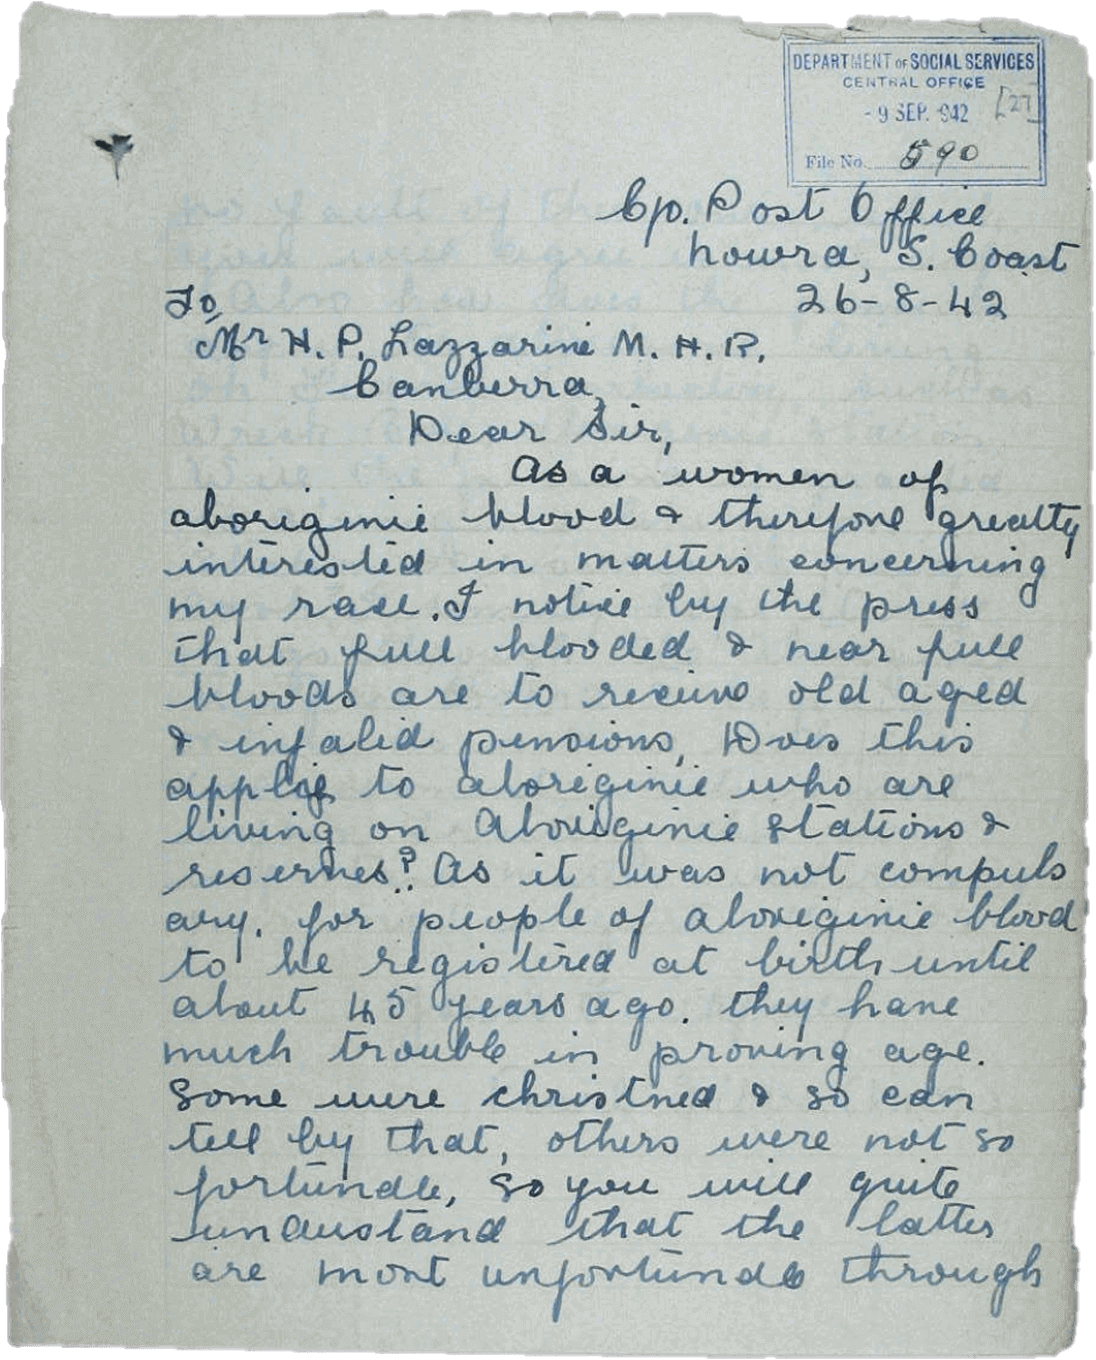 DEPARTMENT OF SOCIAL SERVICES
CENTRAL OFFICE
-9 SEP. 942 [27]
File No. 590
C/o. Post Office
Nowra, S. Coast
26-8-42
To,
Mr H. P. Lazzarini M. H. R.
Canberra,
Dear Sir,
As a women of
aboriginie blood & therefore greatly
interested in matters concerning
my race. I notice by the press
that full blooded & near full
bloods are to receive old aged
& infalid pensions, Does this
applie to aboriginie who are
living on Aboriginie stations &
reserves? As it was not compuls
ary. for people of aboriginie blood
to be registered at birth until
about 45 years ago. they have
much trouble in proving age.
Some were christned & so can
tell by that, others were not so
fortunate, So you will quite
understand that the latter
are most unfortunate through